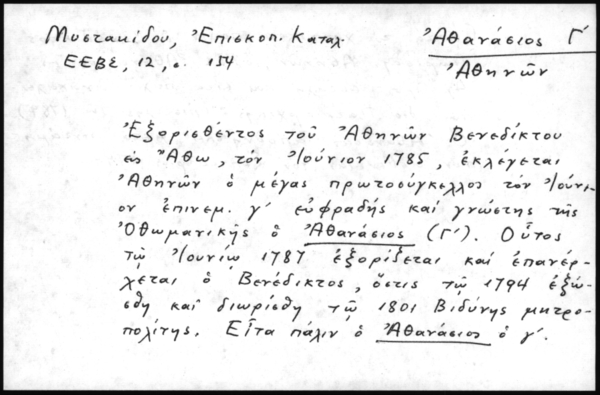 Μυστακίδου, Ἐπισκοπ. Καταλ.
ΕΕΒΣ, 12, σ. 154
Ἀθανάσιος Γ΄
Ἀθηνῶν
Ἐξορισθέντος τοῦ Ἀθηνῶν Βενεδίκτου
εἰς Ἄθω, τόν Ἰούνιον 1785, ἐκλέγεται
Ἀθηνῶν ὁ μέγας πρωτοσύγκελλος τόν Ἰούνι-
ον ἐπινεμ. γ΄ εὐφραδής καί γνώστης τῆς
Ὀθωμανικῆς ὁ Ἀθανάσιος (Γ΄). Οὗτος
τῷ Ἰουνίῳ 1787 ἐξορίζεται καί ἐπανέρ-
χεται ὁ Βενέδικτος, ὅστις τῷ 1794 ἐξώ-
σθη καί διωρίσθη τῷ 1801 Βιδύνης μητρο-
πολίτης. Εἶτα πάλιν ὁ Ἀθανάσιος ὁ γ΄.